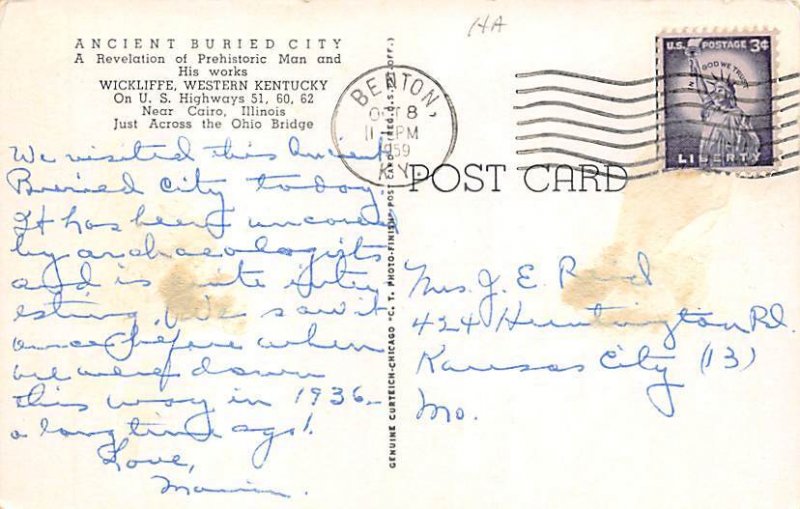 14A
ANCIENT BURIED CITY
A Revelation of Prehistoric Man and
His works
WICKLIFFE, WESTERN KENTUCKY
On U. S. Highways 51, 60, 62
Near Cairo, Illinois
Just Across the Ohio Bridge
BENTON,
OCT 8
PM
1959
KY.
U.S. POSTAGE 3¢
IN GOD WE TRUST
LIBERTY
POST CARD
GENUINE CURTEICH-CHICAGO "C. T. PHOTO-FINISH" POST CARD (REG. U.S. PAT. OFF.)
We visited this Ancient
Buried City today.
It has been uncovered
by archaeologists
and is quite inter
esting. We saw it
once before when
we were down
this way in 1936 –
a long time ago!
Love,
Mrs. J. E. Reid
424 Huntington Rd.
Kansas City (13)
Mo.